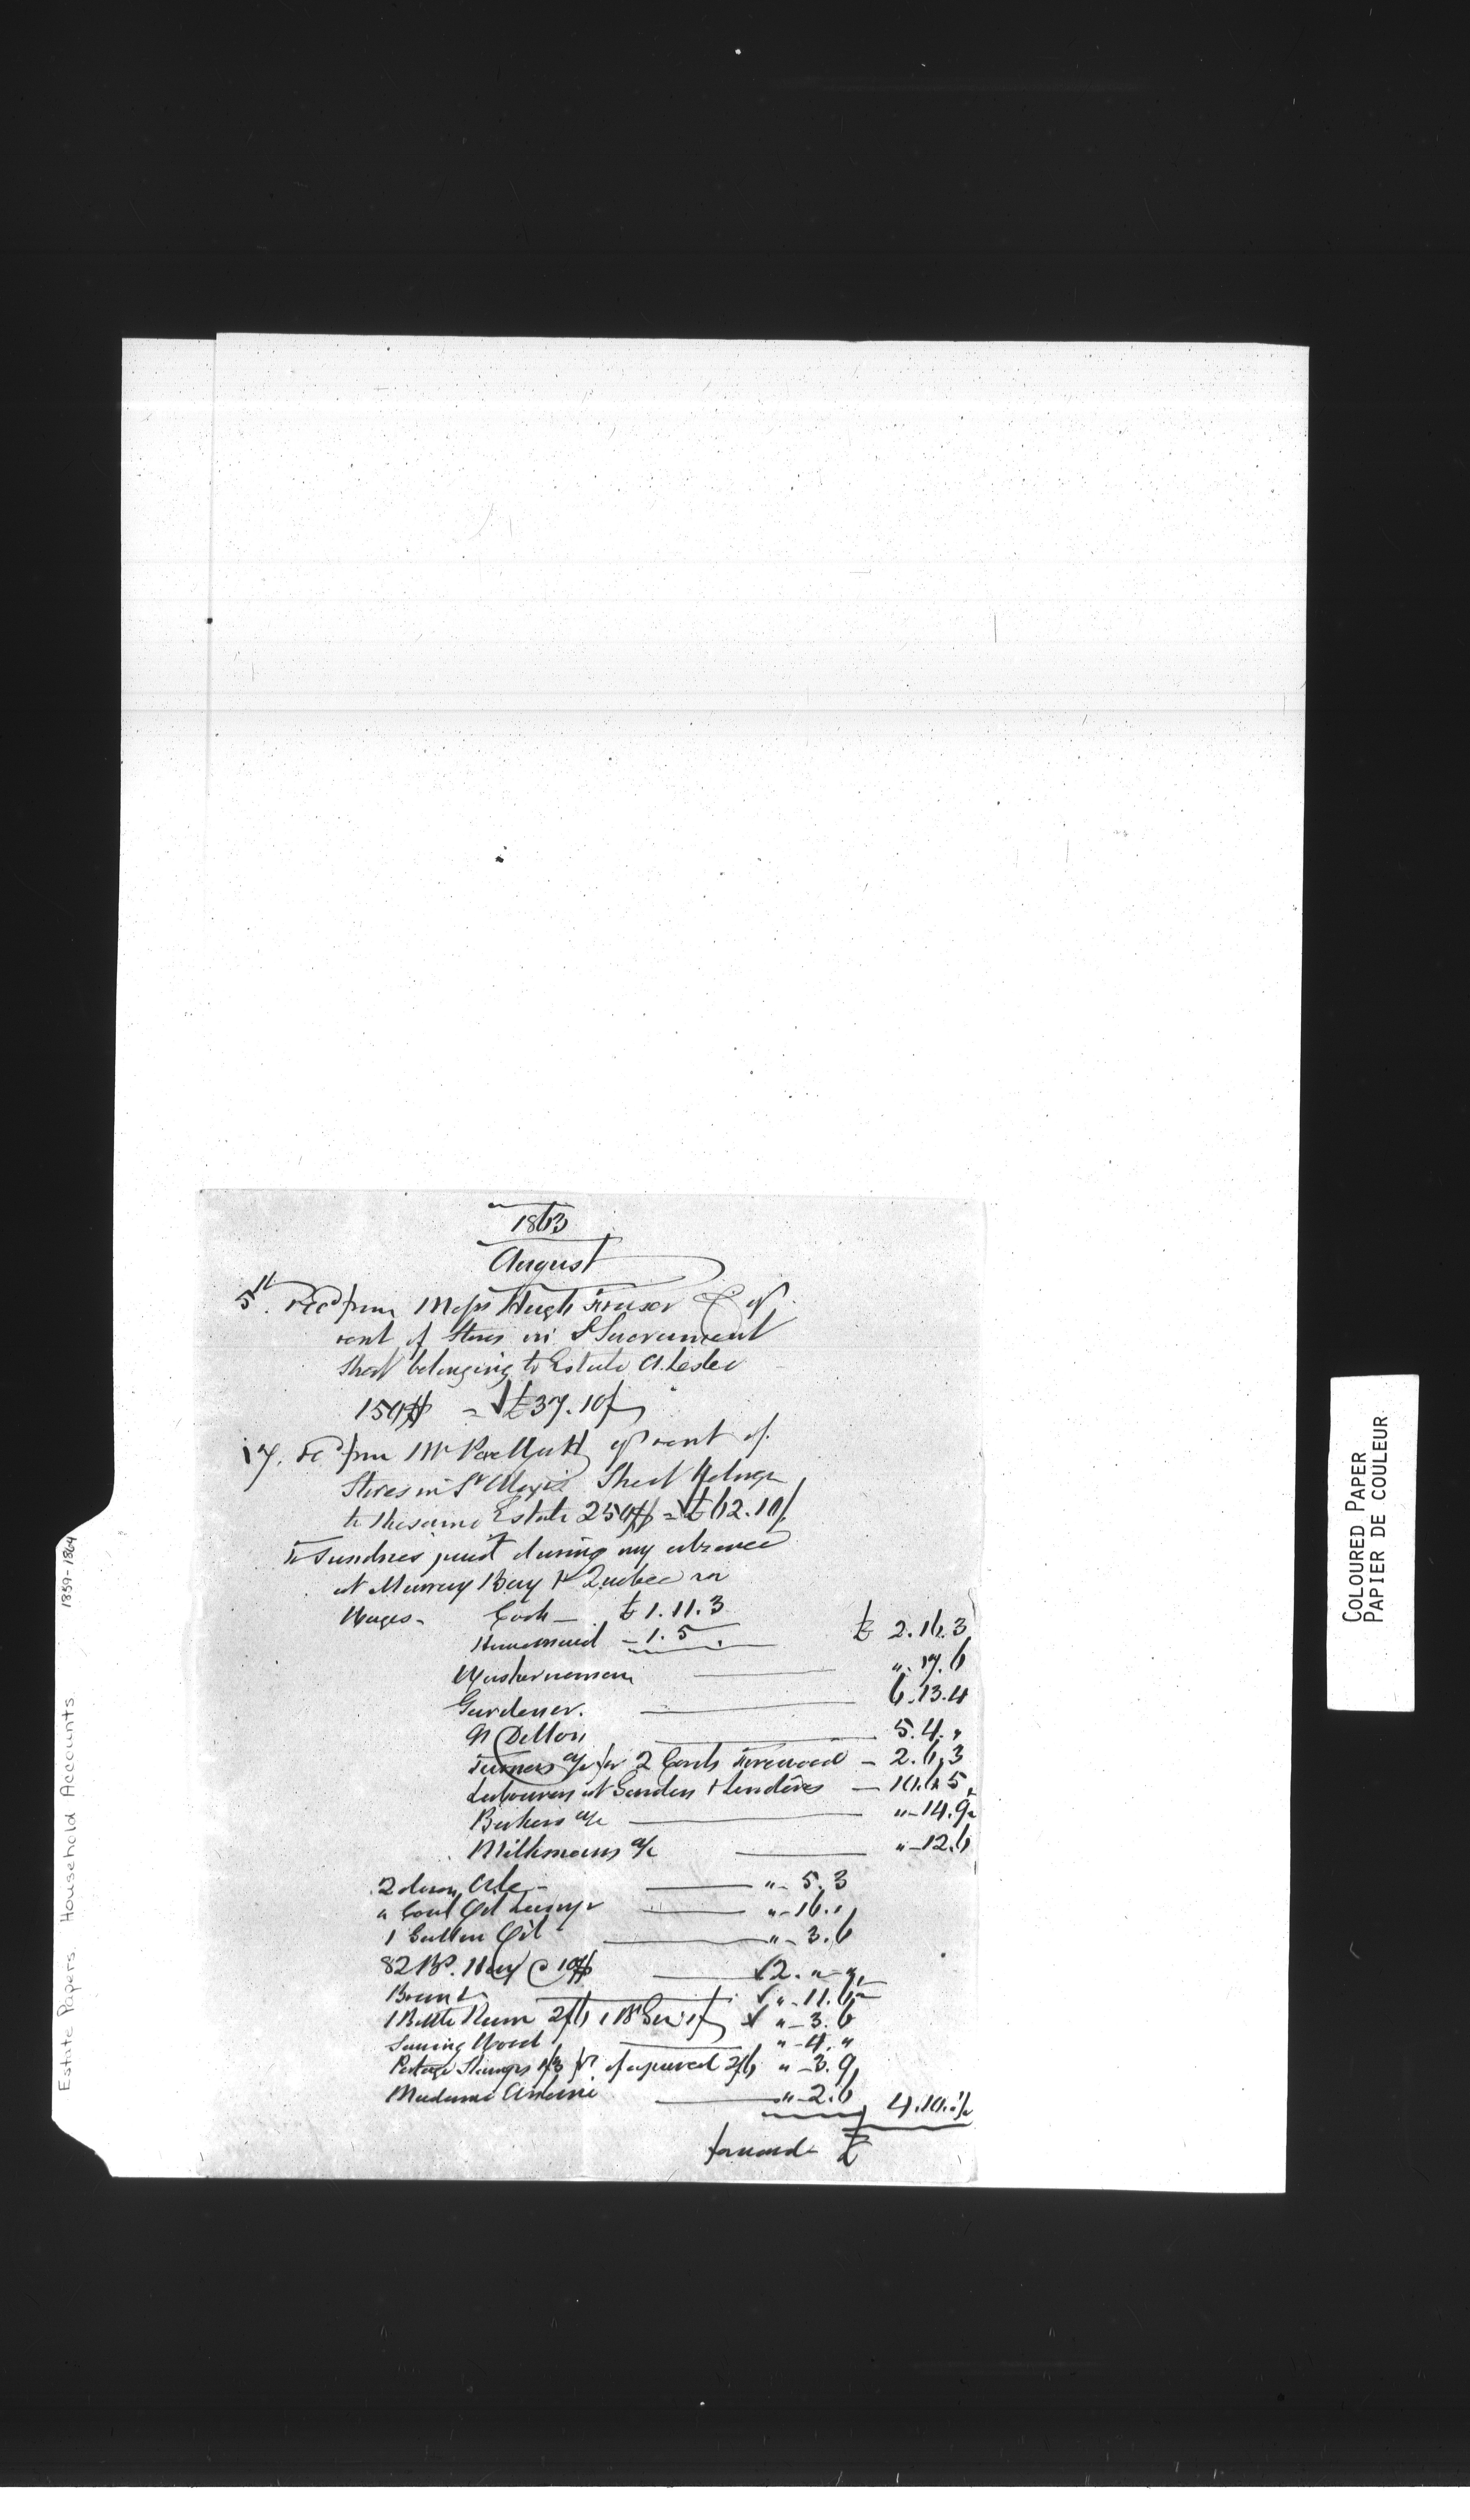 1863
August
5th. Rec'd from Messrs Hugh Fraser & Co
rent of Stores in St Sacrament
Street belonging to Estate A. Leslie
150$ = £37.10/
17. Rec'd from Mr rent of
Stores in St Alexis Street belongg
to the same Estate 250$ = £62.10/
To Sundries paid during my absence
at Murray Bay & Quebec
Wages - Cook - £1.11.3
Housemaid - 1.5. £ 2.16.3
Washerwoman ". 17.6
Gardener. 6.13.4
Dillon 5.4."
Turners a/c for 2 Cords Firewood - 2.6.3
Labourers at Garden & - 10.6.5
Bakers a/c "-14.9
Milkmans a/c "-12.6
2 dozen Ale - "- 5.3
a Coal Oil Lamp "-16.1
1 Gallon Oil "- 3.6
82 Bs. Hay @ 10$ 2."-"
Bran "-11.6
1 Bottle Rum 2/6 1 Gin 1/ "- 3.6
Sawing Wood "-4."
Postage Stamps 1/3 2/6 "-3.9
Madame Antoine "-2.6 4.10.
forward £
Estate Papers. Household Accounts 1859-1864
COLOURED PAPER
PAPIER DE COULEUR